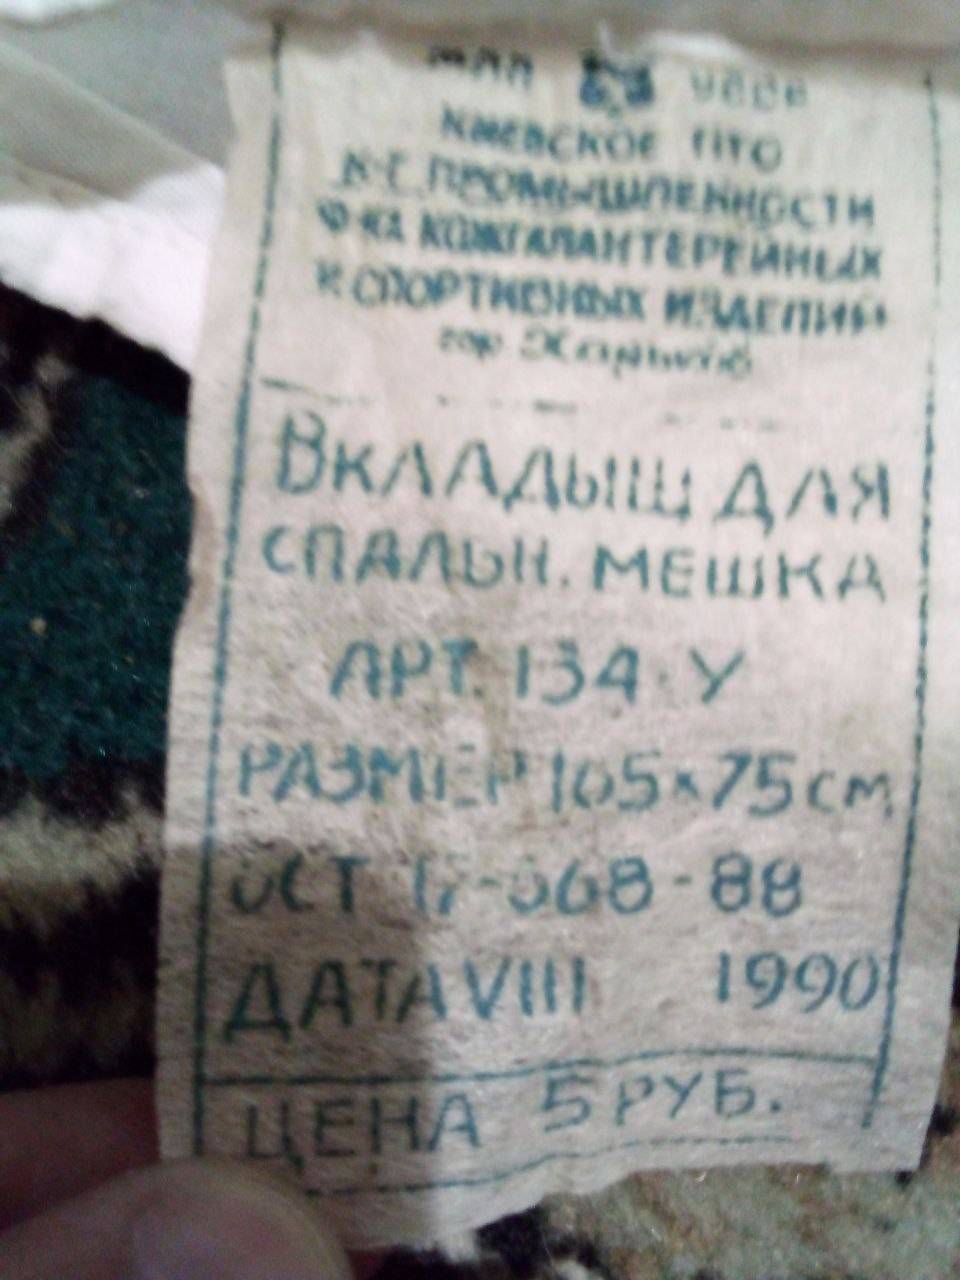 МЛП УССР
КИЕВСКОЕ ПТО
К-Г. ПРОМЫШЛЕННОСТИ
Ф-КА КОЖГАЛАНТЕРЕЙНЫХ
И СПОРТИВНЫХ ИЗДЕЛИЙ
гор. Харьков
ВКЛАДЫШ ДЛЯ
СПАЛЬН. МЕШКА
АРТ. 134-У
РАЗМЕР 165×75 см
ОСТ 17-368-88
ДАТА VIII 1990
ЦЕНА 5 РУБ.